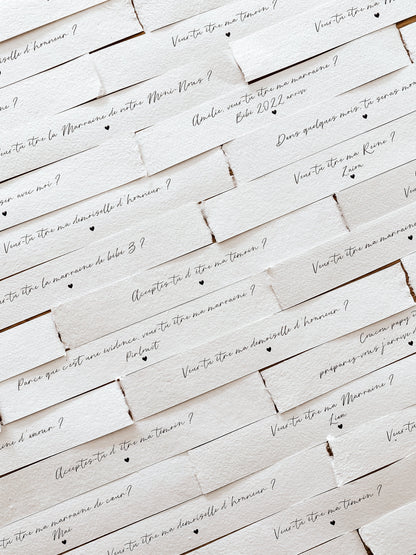 Veux-tu être ma témoin ?
demoiselle d'honneur ?
Bébé 2022 arrive
Amélie, veux-tu être ma marraine ?
Veux-tu être la Marraine de notre Mini-Nous ?
Dans quelques mois tu seras
Veux-tu être ma Reine ?
Zaira
avec moi ?
Veux-tu être ma demoiselle d'honneur ?
Veux-tu être ma marraine
Veux-tu être la marraine de bébé 3 ?
Acceptes-tu d'être ma témoin ?
Parce que c'est une évidence, veux-tu être ma marraine ?
Pirlouit
Veux-tu être ma demoiselle d'honneur ?
Coucou papy
préparez-vous j'arrive
d'amour ?
Acceptes-tu d'être ma témoin ?
Veux-tu être ma Marraine ?
Lina
Veux-tu être ma
être ma marraine de coeur ?
Mae
Veux-tu être ma demoiselle d'honneur ?
Veux-tu être ma témoin ?